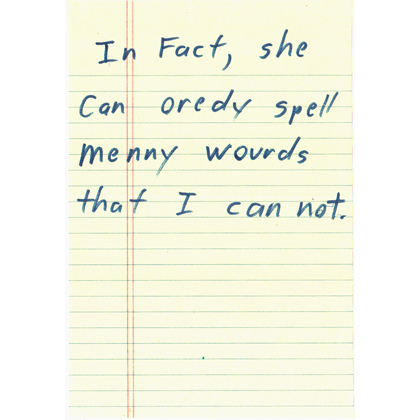 In Fact, she
Can oredy spell
menny wourds
that I can not.